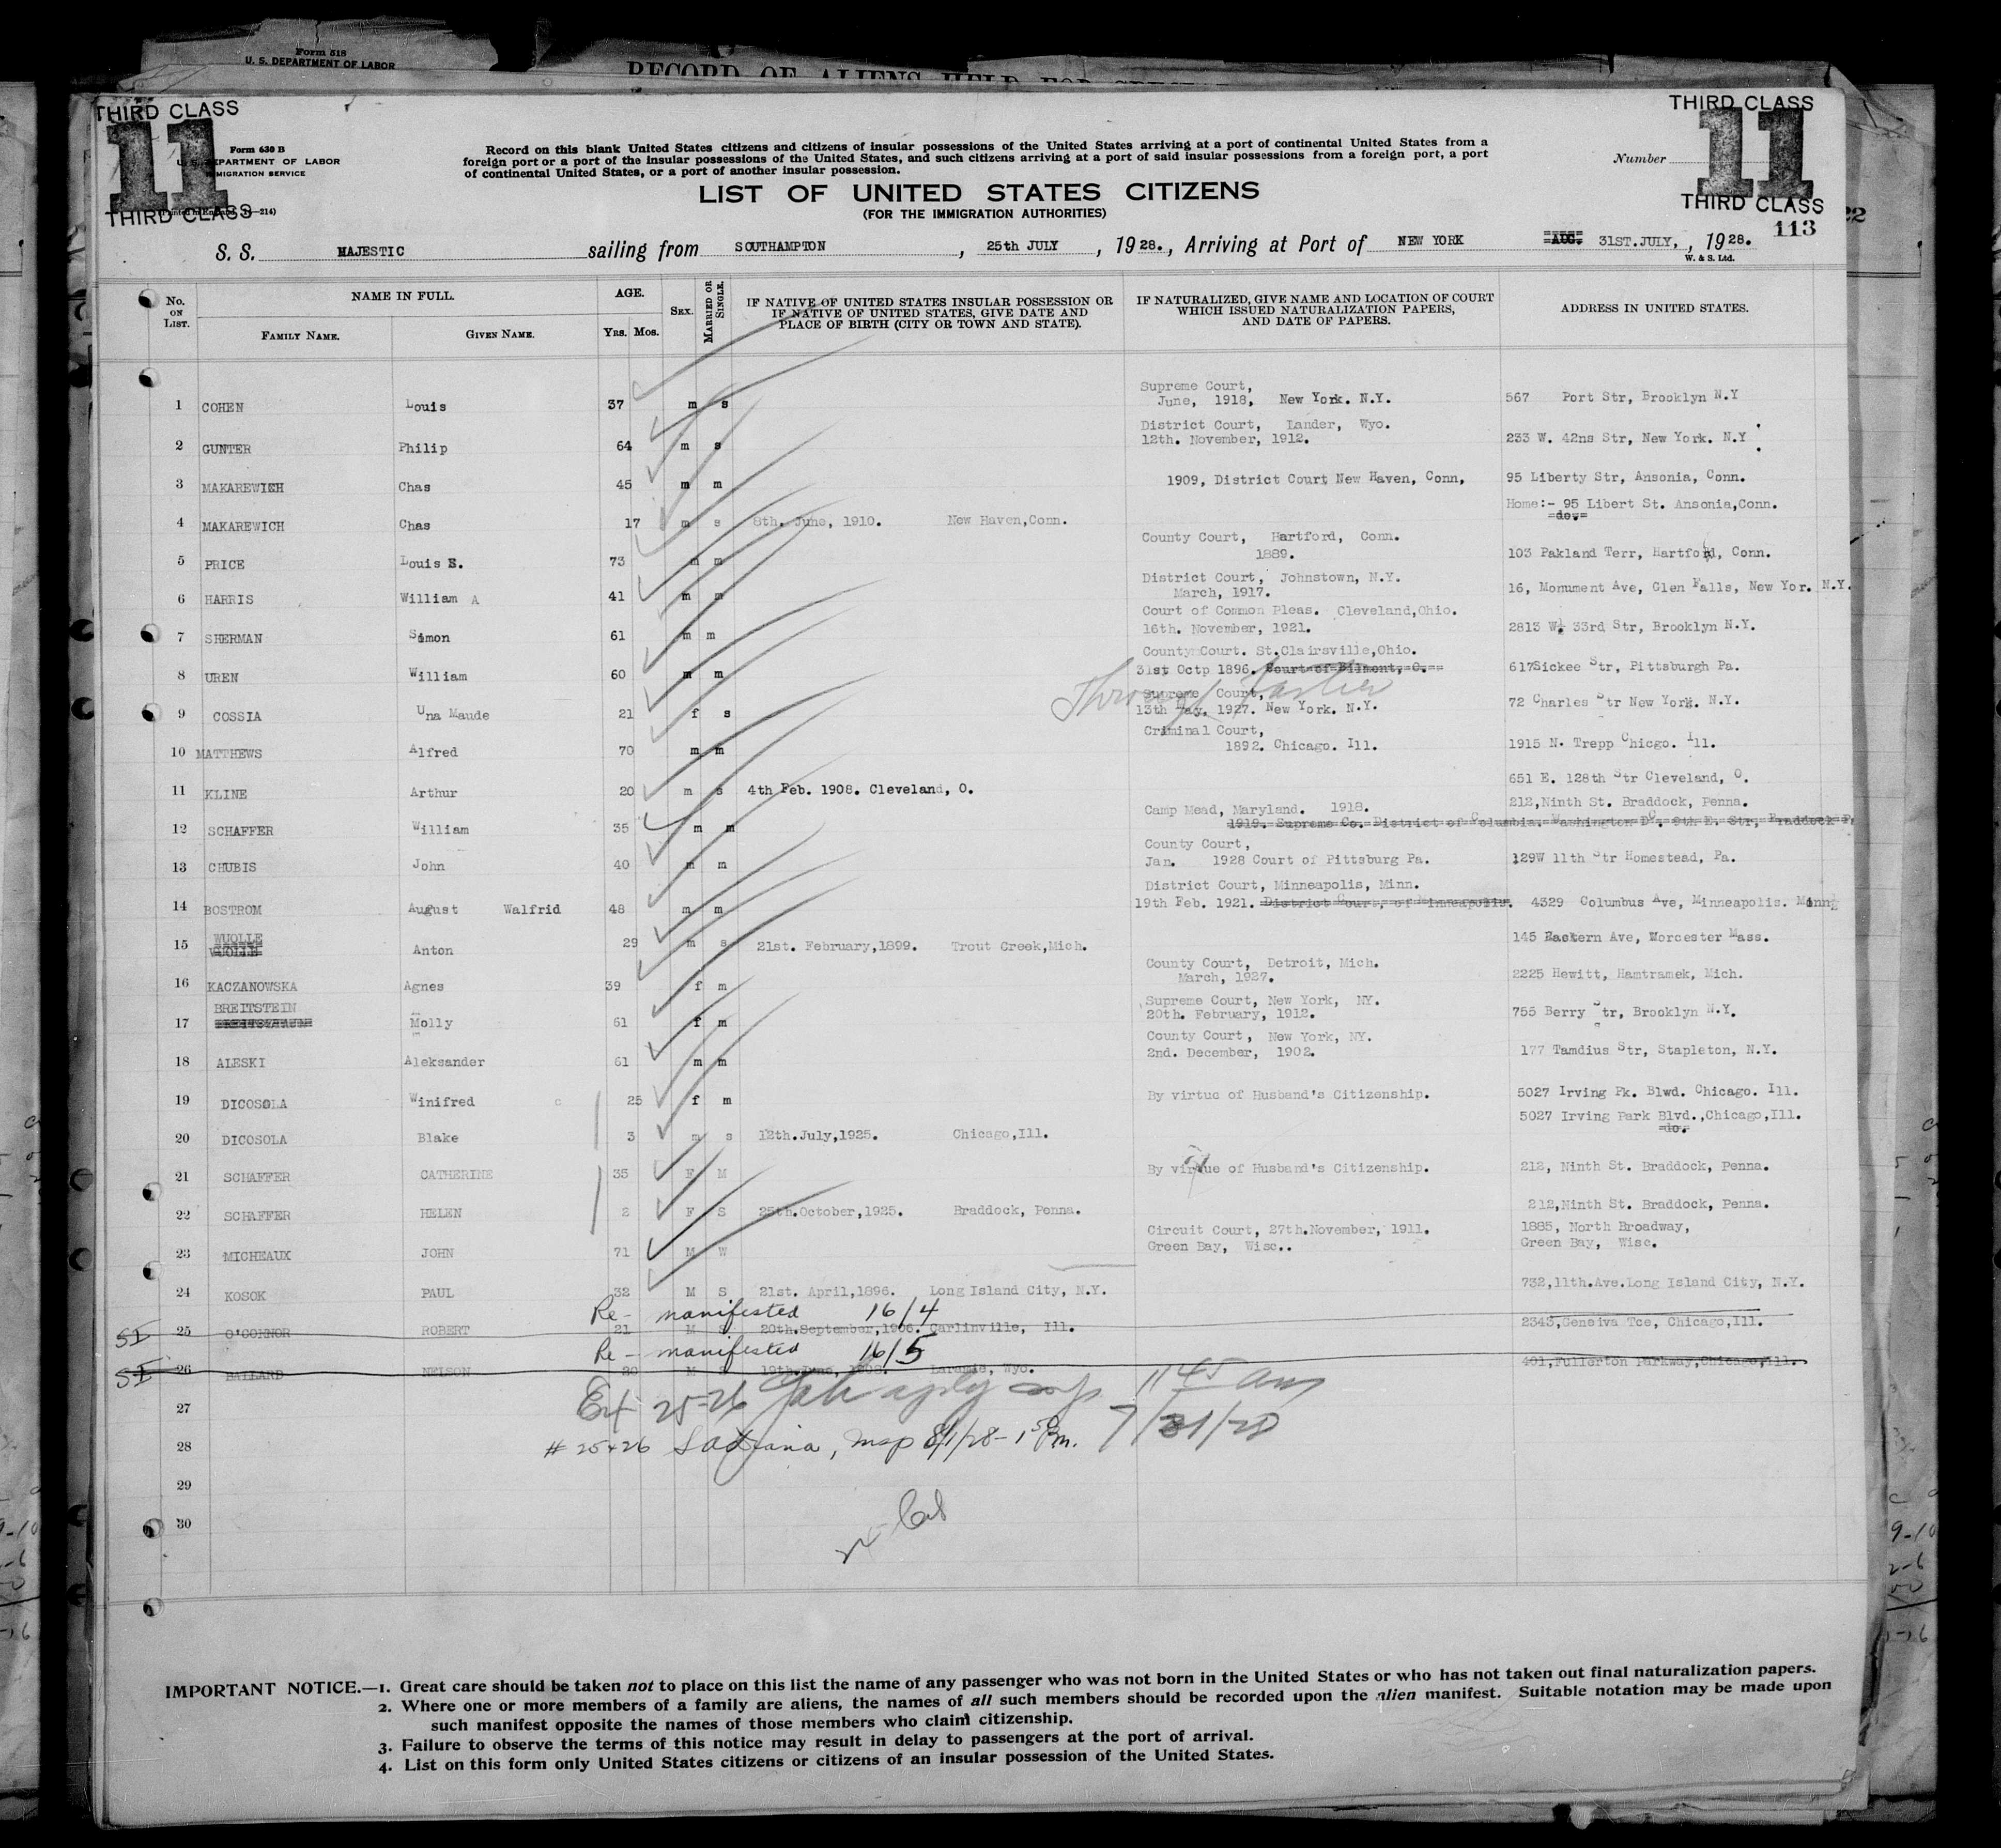 Form 518
U. S. DEPARTMENT OF LABOR
RECORD OF ALIENS HELD FOR
THIRD CLASS
11
Form 630 B
U. S. DEPARTMENT OF LABOR
IMMIGRATION SERVICE
THIRD CLASS
Record on this blank United States citizens and citizens of insular possessions of the United States arriving at a port of continental United States from a
foreign port or a port of the insular possessions of the United States, and such citizens arriving at a port of said insular possessions from a foreign port, a port
of continental United States, or a port of another insular possession.
LIST OF UNITED STATES CITIZENS
(FOR THE IMMIGRATION AUTHORITIES)
THIRD CLASS
11
Number
THIRD CLASS
113
S. S. MAJESTIC sailing from SOUTHAMPTON, 25th JULY, 1928., Arriving at Port of NEW YORK AUG. 31ST.JULY,, 1928.
W. & S. Ltd.
No. ON LIST. NAME IN FULL. FAMILY NAME. GIVEN NAME. AGE. YRS. MOS. SEX. MARRIED OR SINGLE. IF NATIVE OF UNITED STATES INSULAR POSSESSION OR IF NATIVE OF UNITED STATES, GIVE DATE AND PLACE OF BIRTH (CITY OR TOWN AND STATE). IF NATURALIZED, GIVE NAME AND LOCATION OF COURT WHICH ISSUED NATURALIZATION PAPERS, AND DATE OF PAPERS. ADDRESS IN UNITED STATES.
Supreme Court,
1 COHEN Louis 37 m s June, 1918, New York. N.Y. 567 Port Str, Brooklyn N.Y
District Court, Lander, Wyo.
2 GUNTER Philip 64 m s 12th. November, 1912. 233 W. 42ns Str, New York. N.Y
3 MAKAREWICH Chas 45 m m 1909, District Court New Haven, Conn, 95 Liberty Str, Ansonia, Conn.
Home:- 95 Libert St. Ansonia,Conn.
4 MAKAREWICH Chas 17 m s 8th. June, 1910. New Haven,Conn. do.
County Court, Hartford, Conn.
5 PRICE Louis E. 73 m m 1889. 103 Pakland Terr, Hartford, Conn.
District Court, Johnstown, N.Y.
6 HARRIS William A 41 m m March, 1917. 16, Monument Ave, Glen Falls, New Yor. N.Y.
Court of Common Pleas. Cleveland,Ohio.
7 SHERMAN Simon 61 m m 16th. November, 1921. 2813 W. 33rd Str, Brooklyn N.Y.
County Court. St.Clairsville,Ohio.
8 UREN William 60 m m 31st Octp 1896. Court of Bilmont, O. 617Sickee Str, Pittsburgh Pa.
Supreme Court,
9 COSSIA Una Maude 21 f s 13th May. 1927. New York. N.Y. 72 Charles Str New York. N.Y.
Criminal Court,
10 MATTHEWS Alfred 70 m m 1892. Chicago. Ill. 1915 N. Trepp Chicgo. Ill.
11 KLINE Arthur 20 m s 4th Feb. 1908. Cleveland, O. 651 E. 128th Str Cleveland, O.
Camp Mead, Maryland. 1918. 212,Ninth St. Braddock, Penna.
12 SCHAFFER William 35 m m 1919. Supreme Co. District of Columbia. Washington DC. 9th E. Str, Braddock P
County Court,
13 CHUBIS John 40 m m Jan. 1928 Court of Pittsburg Pa. 129W 11th Str Homestead, Pa.
District Court, Minneapolis, Minn.
14 BOSTROM August Walfrid 48 m m 19th Feb. 1921. District Court, of Minneapolis. 4329 Columbus Ave, Minneapolis. Minn
WUOLLE
15 Anton 29 m s 21st. February,1899. Trout Creek,Mich. 145 Eastern Ave, Worcester Mass.
County Court, Detroit, Mich.
16 KACZANOWSKA Agnes 39 f m March, 1927. 2225 Hewitt, Hamtramek, Mich.
BREITSTEIN Supreme Court, New York, NY.
17 Molly 61 f m 20th. February, 1912. 755 Berry Str, Brooklyn N.Y.
County Court, New York, NY.
18 ALESKI Aleksander 61 m m 2nd. December, 1902. 177 Tamdius Str, Stapleton, N.Y.
19 DICOSOLA Winifred c 25 f m By virtue of Husband's Citizenship. 5027 Irving Pk. Blwd. Chicago. Ill.
5027 Irving Park Blvd.,Chicago,Ill.
20 DICOSOLA Blake 3 m s 12th.July,1925. Chicago,Ill. do.
21 SCHAFFER CATHERINE 35 F M By virtue of Husband's Citizenship. 212, Ninth St. Braddock, Penna.
22 SCHAFFER HELEN 2 F S 25th.October,1925. Braddock, Penna. 212,Ninth St. Braddock, Penna.
Circuit Court, 27th.November, 1911. 1885, North Broadway,
23 MICHEAUX JOHN 71 M W Green Bay, Wisc.. Green Bay, Wisc.
24 KOSOK PAUL 32 M S 21st. April,1896. Long Island City, N.Y. 732,11th.Ave.Long Island City, N.Y.
Re-manifested 16/4
SI 25 O'CONNOR ROBERT 21 M S 20th.September,1906. Carlinville, Ill. 2343,Geneiva Tce, Chicago,Ill.
Re-manifested 16/5
SI 26 BALLARD NELSON 20 M S 19th.June, 1908. Laramie, Wyo. 401,Fullerton Parkway,Chicago,Ill.
27 25-26 1145 am
28 # 25+26 8/1/28 - 1 50 Pm. 7/31/28
29
30
IMPORTANT NOTICE.—1. Great care should be taken not to place on this list the name of any passenger who was not born in the United States or who has not taken out final naturalization papers.
2. Where one or more members of a family are aliens, the names of all such members should be recorded upon the alien manifest. Suitable notation may be made upon
such manifest opposite the names of those members who claim citizenship.
3. Failure to observe the terms of this notice may result in delay to passengers at the port of arrival.
4. List on this form only United States citizens or citizens of an insular possession of the United States.